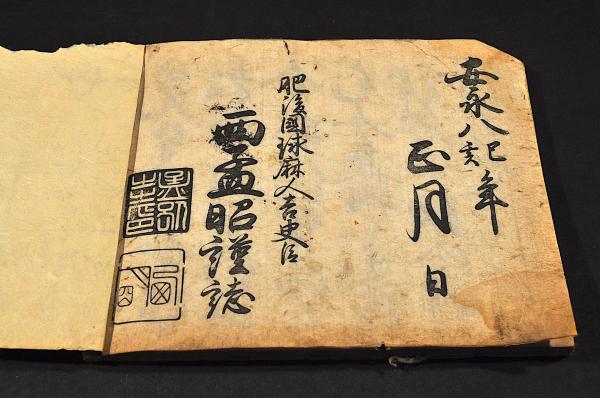 安永八己亥年
正月 日
肥後國球麻人吉史臣
西孟昭謹誌